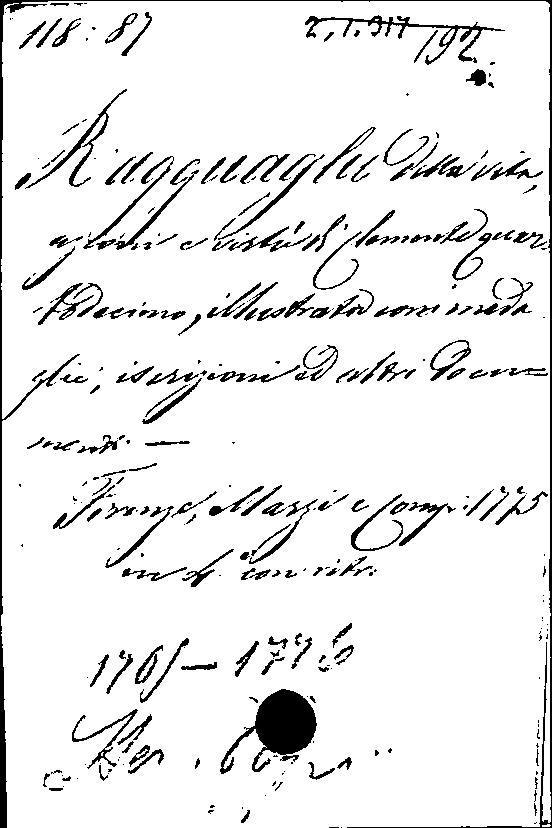 118:87 2,1.317 192.
Ragguaglio della vita,
azioni e virtù di Clemente quar=
todecimo, illustrato con meda
glie, iscrizioni ed altri docu=
menti. —
Firenze, Mazzi e Comp. 1775
in 4. con ritr.
1705 — 1776